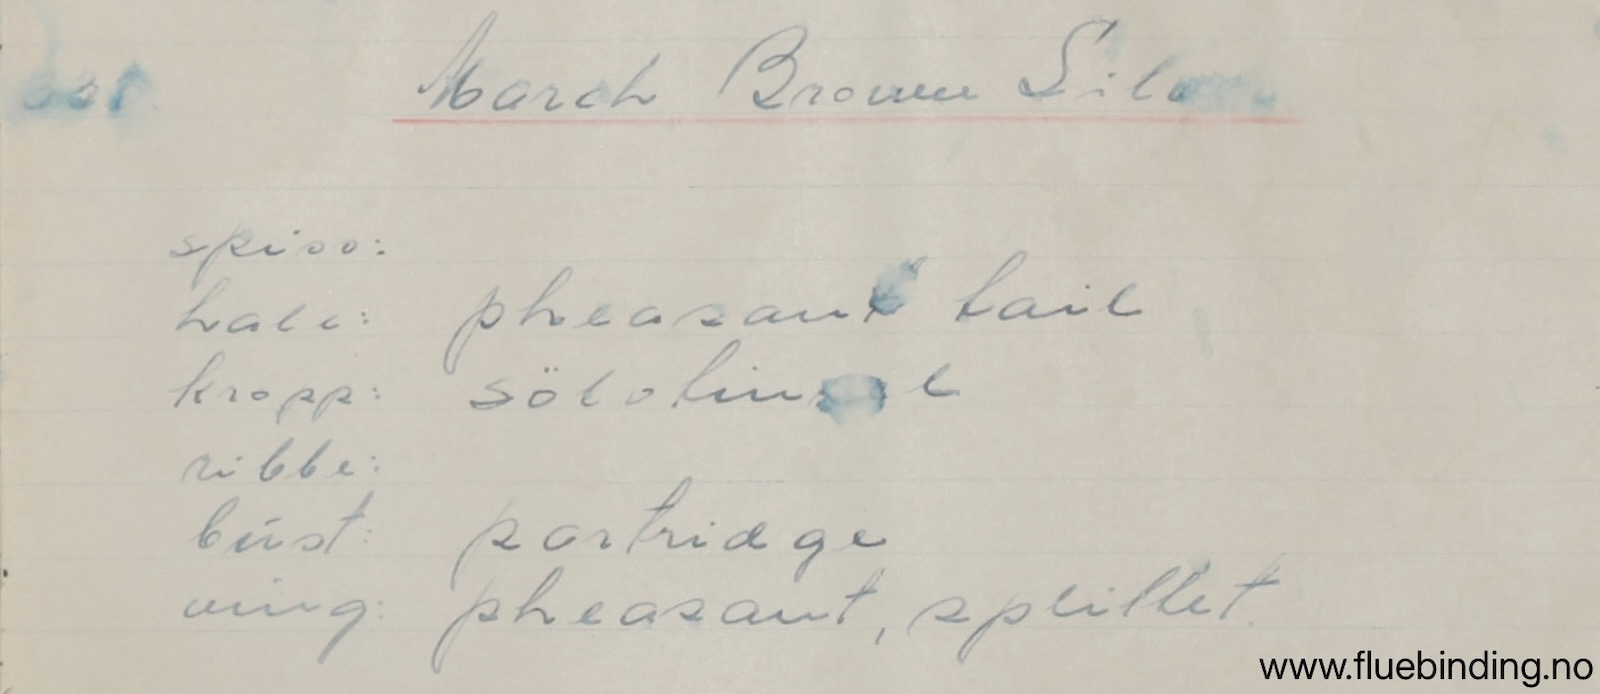 March Brown Silv
spiss:
hale: pheasant tail
kropp: sölvtinsel
ribbe:
büst: partridge
ving: pheasant, splittet.
www.fluebinding.no